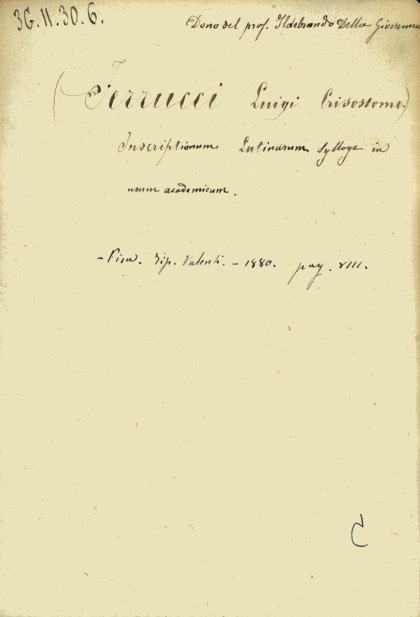 36.II.30.6.
Dono del prof. Ildebrando Della Giovanna
(Ferrucci Luigi Crisostomo)
Inscriptionum Latinarum sylloge in
usum academicum.
- Pisa. Tip. Valenti. - 1880. pag. VIII.